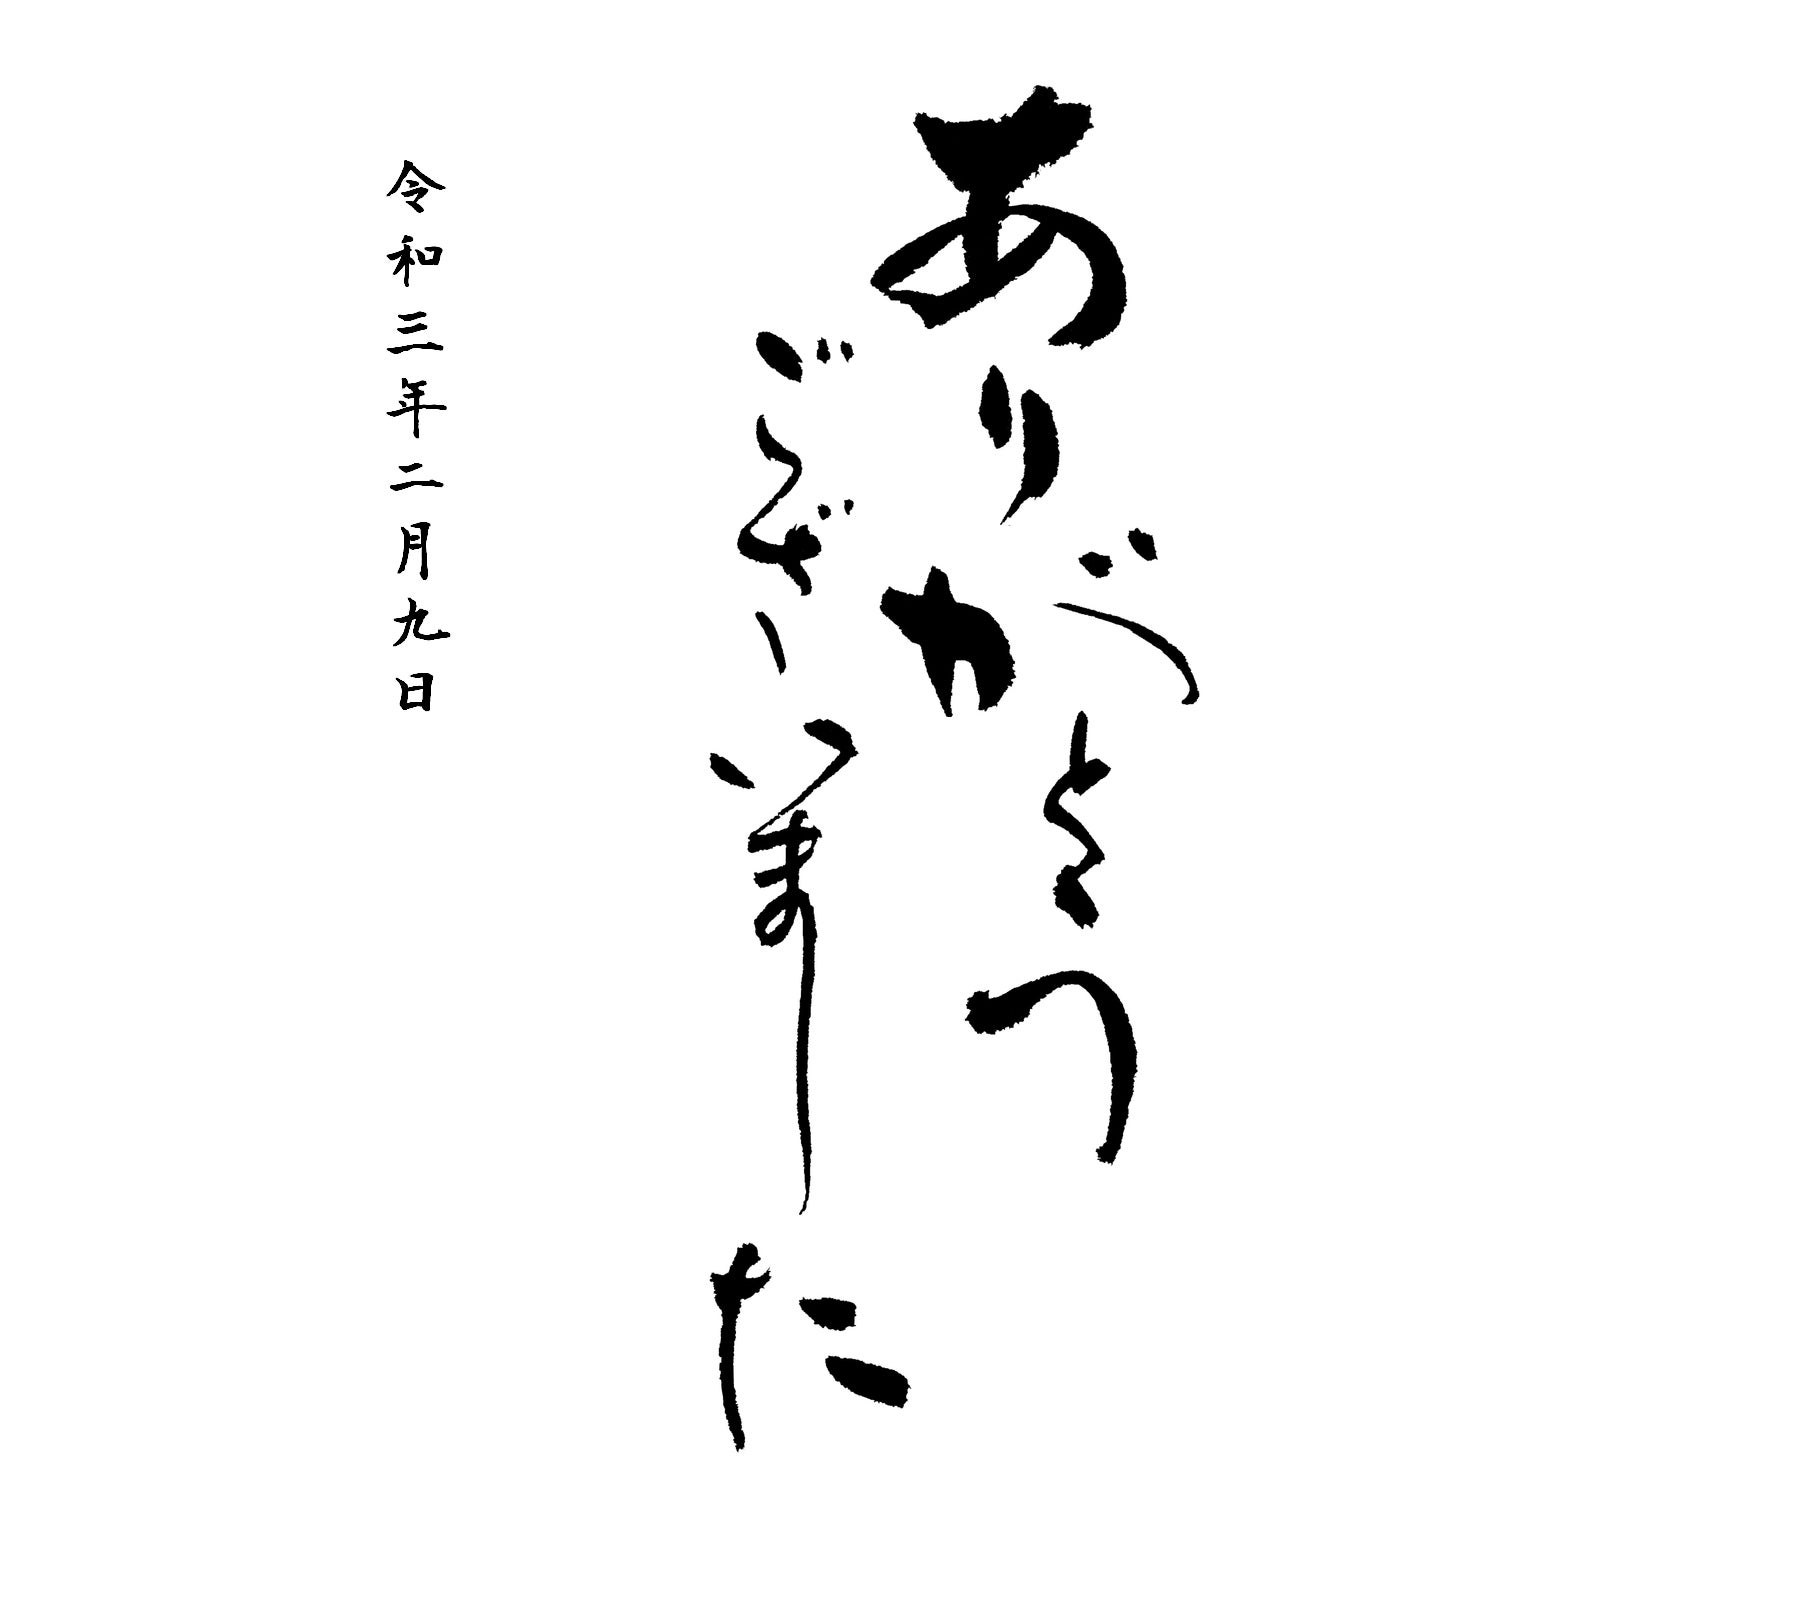 ありがとう
ございました
令和三年二月九日